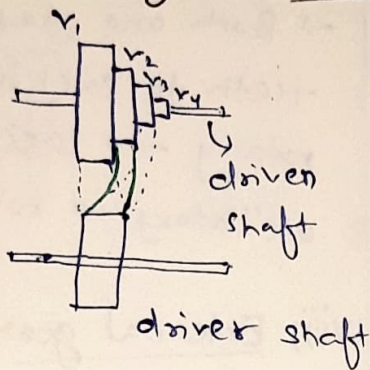 r₁
r₂
r₃
r₄
driven
shaft
driver shaft